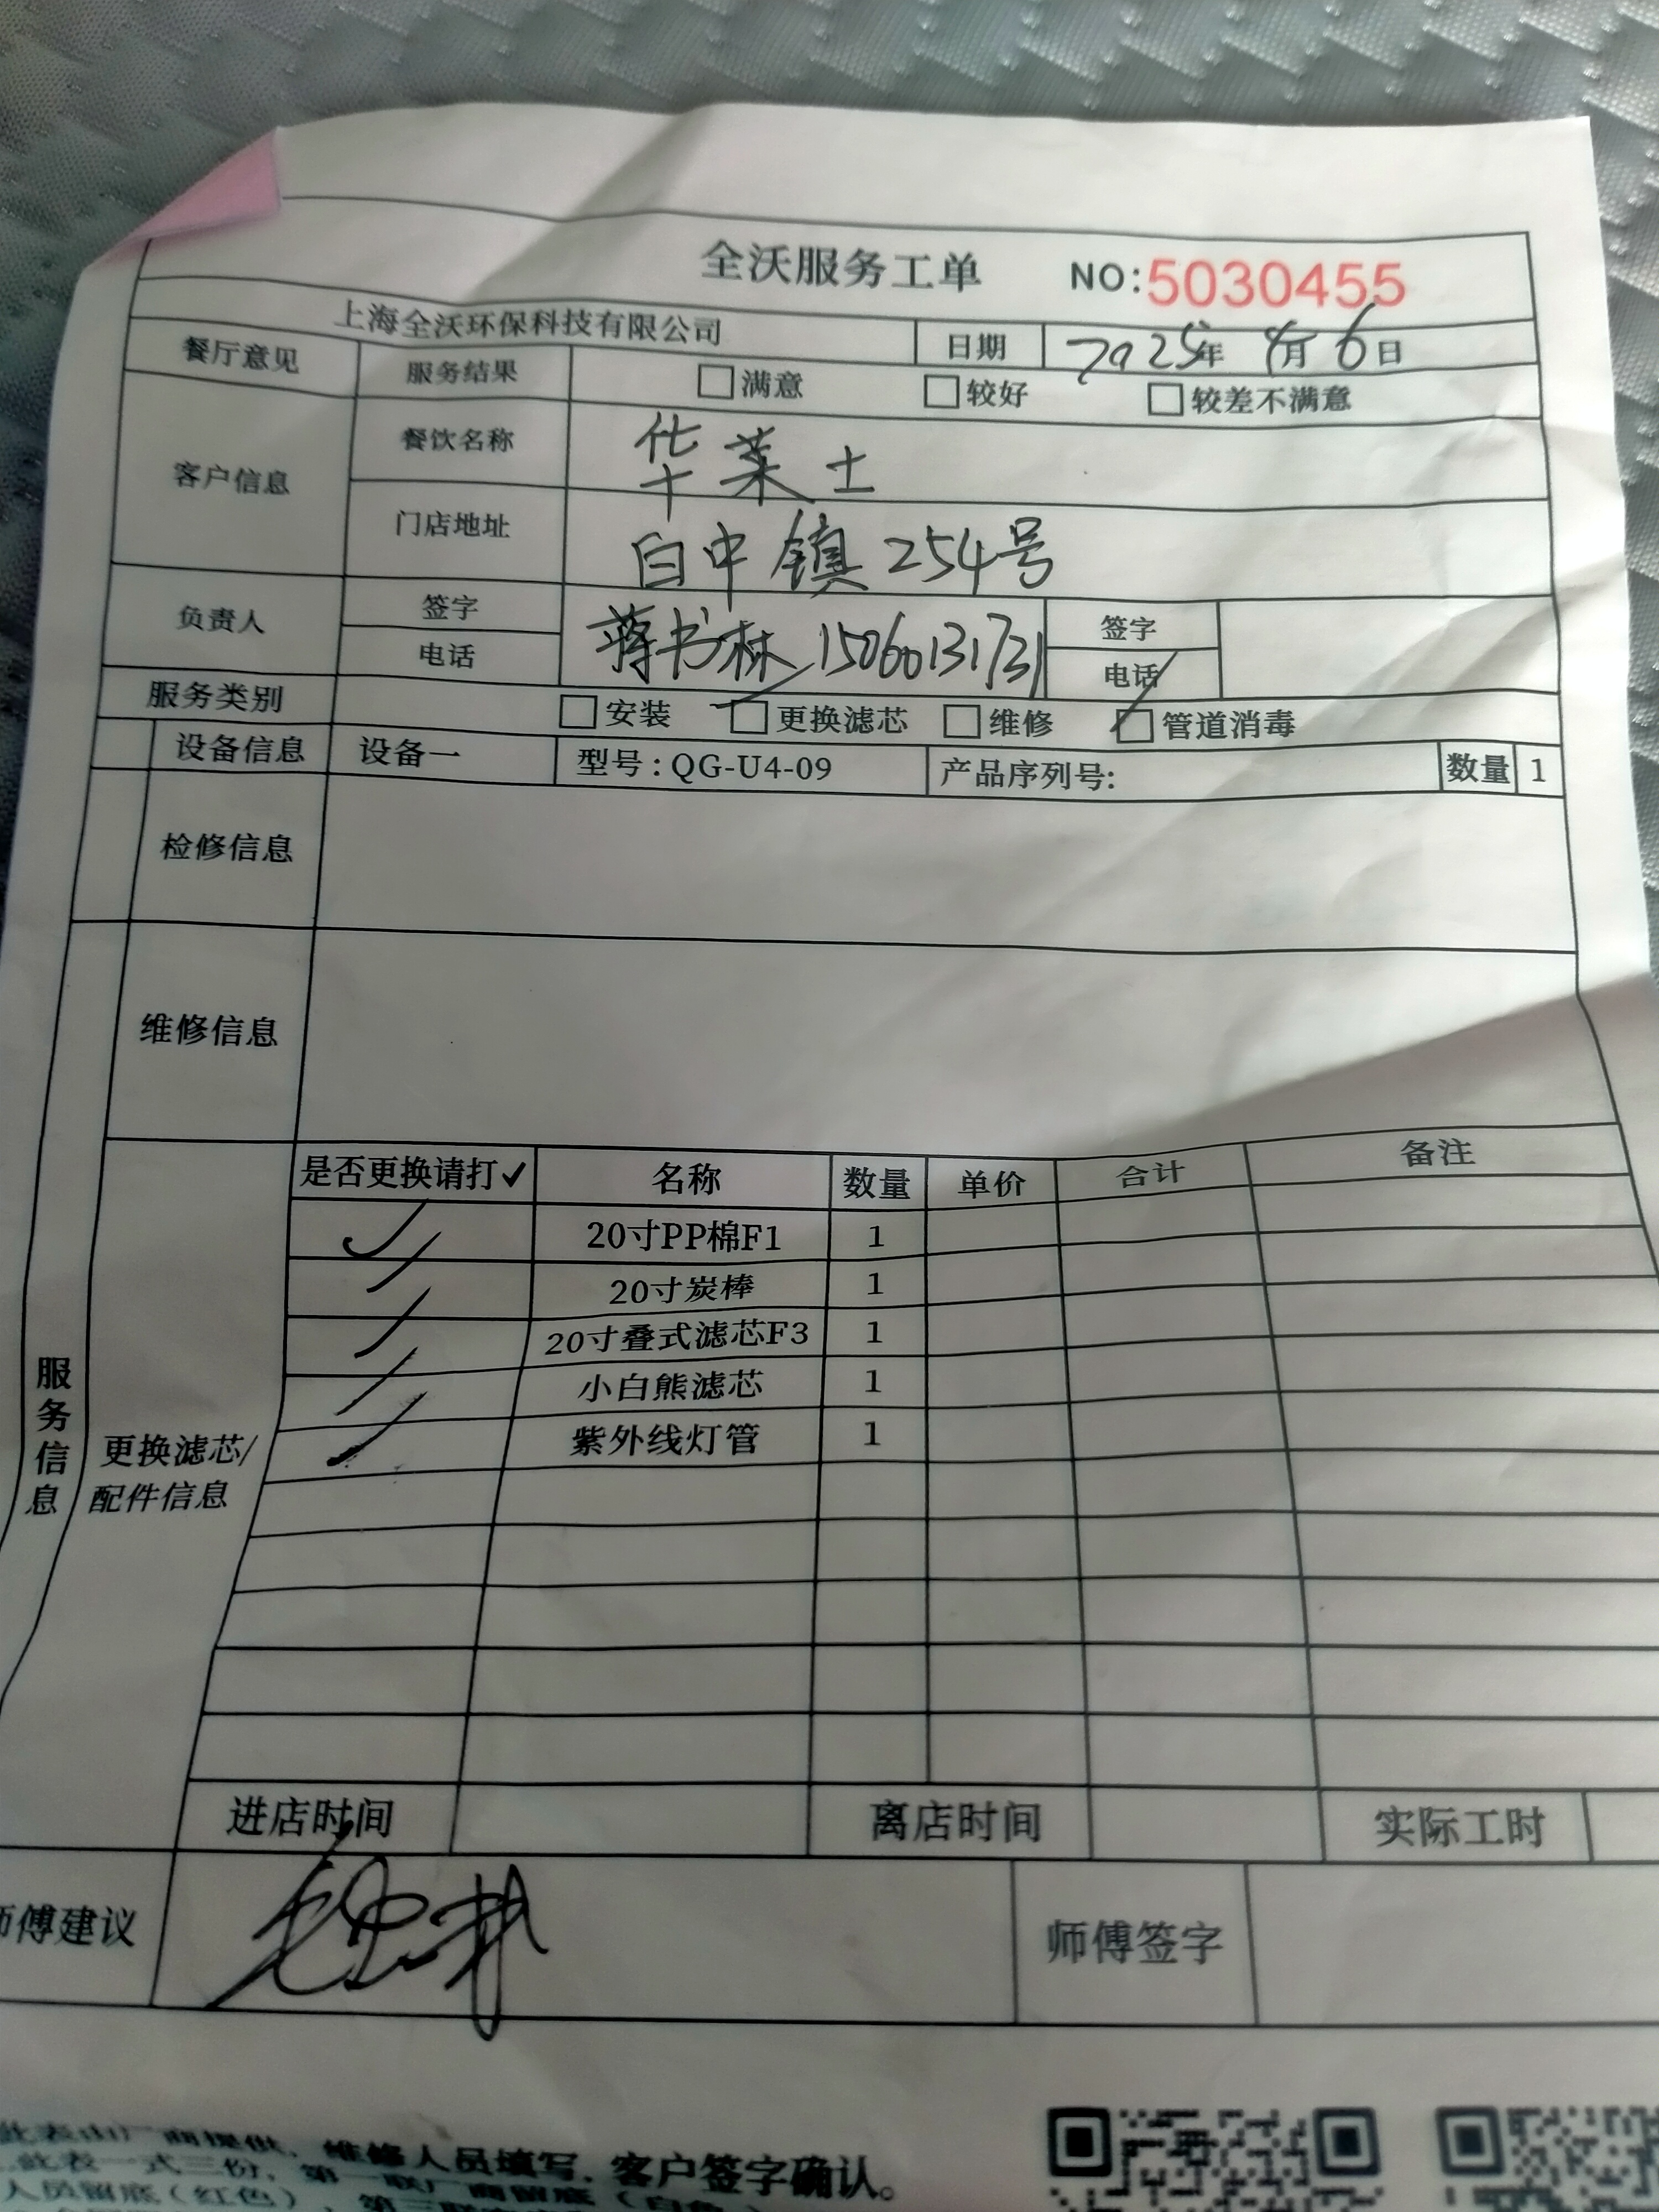 全沃服务工单 NO:5030455
上海全沃环保科技有限公司 日期 2025年 4月 6日
餐厅意见 服务结果 □满意 □较好 □较差不满意
客户信息 餐饮名称 华莱士
门店地址 白中镇254号
负责人 签字 电话 蒋书林 15060131731 签字 电话
服务类别 □安装 □更换滤芯 □维修 □管道消毒
设备信息 设备一 型号:QG-U4-09 产品序列号: 数量 1
检修信息
维修信息
服务信息
更换滤芯/配件信息
是否更换请打✓ 名称 数量 单价 合计 备注
✓ 20寸PP棉F1 1
20寸炭棒 1
20寸叠式滤芯F3 1
小白熊滤芯 1
紫外线灯管 1
进店时间 离店时间 实际工时
师傅建议 师傅签字
此表由厂商提供,维修人员填写,客户签字确认。